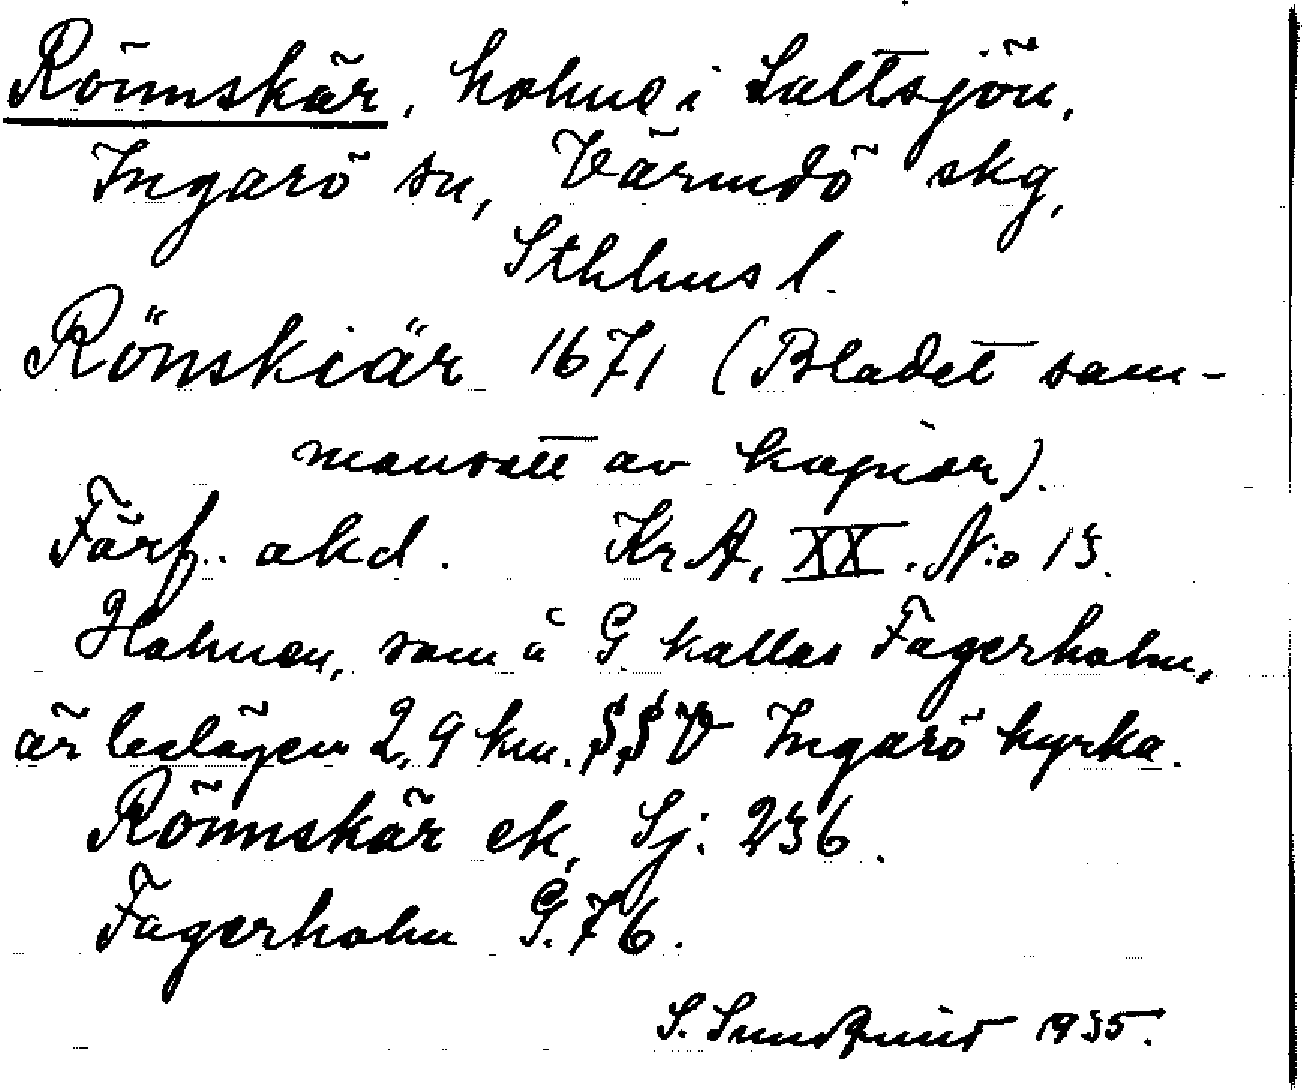 Rönnskär, holme i Saltsjön,
Ingarö sn, Värmdö skg,
Sthlms l.
Rönskiär 1671 (Bladet sam-
mansatt av kopior).
Förf. okd. Kr A, XX. N:o 13.
Holmen, som å G kallas Fagerholm,
är belägen 2,9 km. SSV Ingarö kyrka.
Rönnskär ek, Sj: 236.
Fagerholm G. 76.
S. Sundquist 1935.